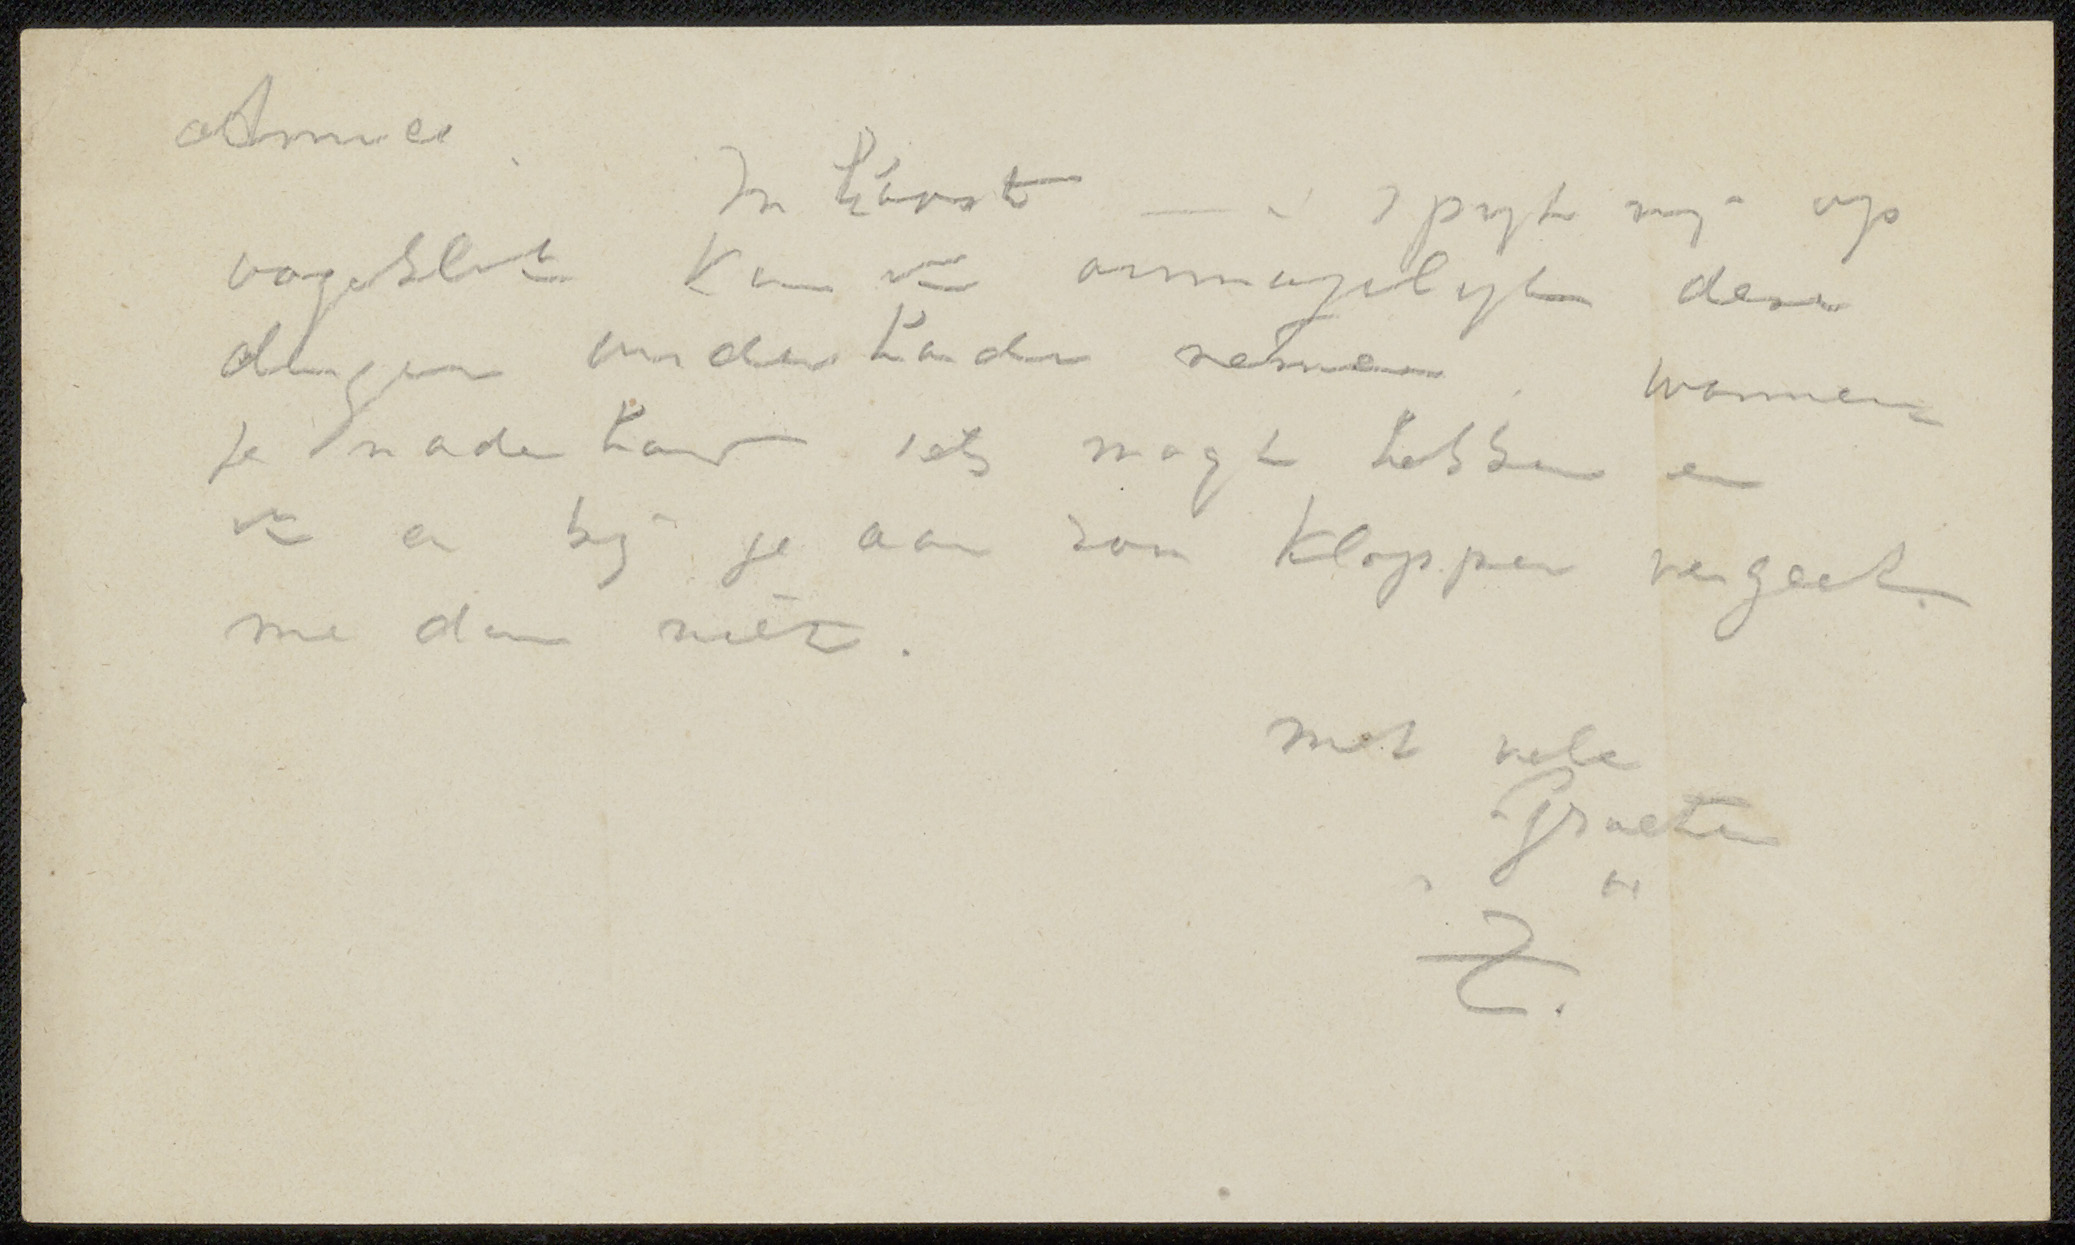 Amice
In haast — 't spijt mij op
oogenblik kan ik onmogelijk deze
dingen onderhanden nemen. Wanneer
je naderhand iets mogt hebben en
ik er bij je aan kom kloppen vergeet
me dan niet.
met vele
Groeten
Z.